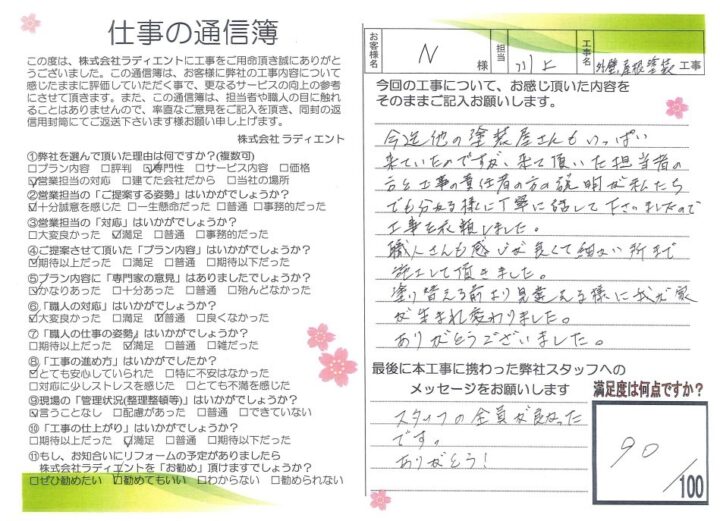 仕事の通信簿
この度は、株式会社ラディエントに工事をご用命頂き誠にありがと
うございました。この通信簿は、お客様に弊社の工事内容について
感じたままに評価していただく事で、更なるサービスの向上の参考
にさせて頂きます。また、この通信簿は、担当者や職人の目に触れ
ることはありませんので、率直なご意見をご記入頂き、同封の返
信用封筒にてご返送下さいます様お願い申し上げます。
株式会社 ラディエント
①弊社を選んで頂いた理由は何ですか?(複数可)
□プラン内容 □評判 ☑専門性 □サービス内容 □価格
☑営業担当の対応 □建てた会社だから □当社の場所
②営業担当の「ご提案する姿勢」はいかがでしょうか?
☑十分誠意を感じた □一生懸命だった □普通 □事務的だった
③営業担当の「対応」はいかがでしょうか?
□大変良かった ☑満足 □普通 □事務的だった
④ご提案させて頂いた「プラン内容」はいかがでしょうか?
☑期待以上だった □満足 □普通 □期待以下だった
⑤プラン内容に「専門家の意見」はありましたでしょうか?
☑かなりあった □十分あった □普通 □殆んどなかった
⑥「職人の対応」はいかがでしょうか?
☑大変良かった □満足 ☑普通 □良くなかった
⑦「職人の仕事の姿勢」はいかがでしたでしょうか?
□期待以上だった ☑満足 □普通 □雑だった
⑧「工事の進め方」はいかがでしたか?
☑とても安心していられた □特に不安はなかった
□対応に少しストレスを感じた □とても不満を感じた
⑨現場の「管理状況(整理整頓等)」はいかがでしょうか?
☑言うことなし □配慮があった □普通 □できていない
⑩「工事の仕上がり」はいかがでしょうか?
□期待以上だった ☑満足 □普通 □期待以下だった
⑪もし、お知合いにリフォームの予定がありましたら
株式会社ラディエントを「お勧め」頂けますでしょうか?
□ぜひ勧めたい ☑勧めてもいい □わからない □勧められない
お客様名 N 様 担当 川上 工事名 外壁、屋根塗装 工事
今回の工事について、お感じ頂いた内容を
そのままご記入お願いします。
今迄他の塗装屋さんもいっぱい
来ていたのですが、来て頂いた担当者の
方と工事の責任者の方の説明が私たち
でも分かる様に丁寧に話して下さいましたので
工事を依頼しました。
職人さんも感じが良くて細かい所まで
施工して頂きました。
塗り替える前より見違える様に我が家
が生まれ変わりました。
ありがとうございました。
最後に本工事に携わった弊社スタッフへの
メッセージをお願いします
スタッフの全員が良かった
です。
ありがとう!
満足度は何点ですか?
90
/100